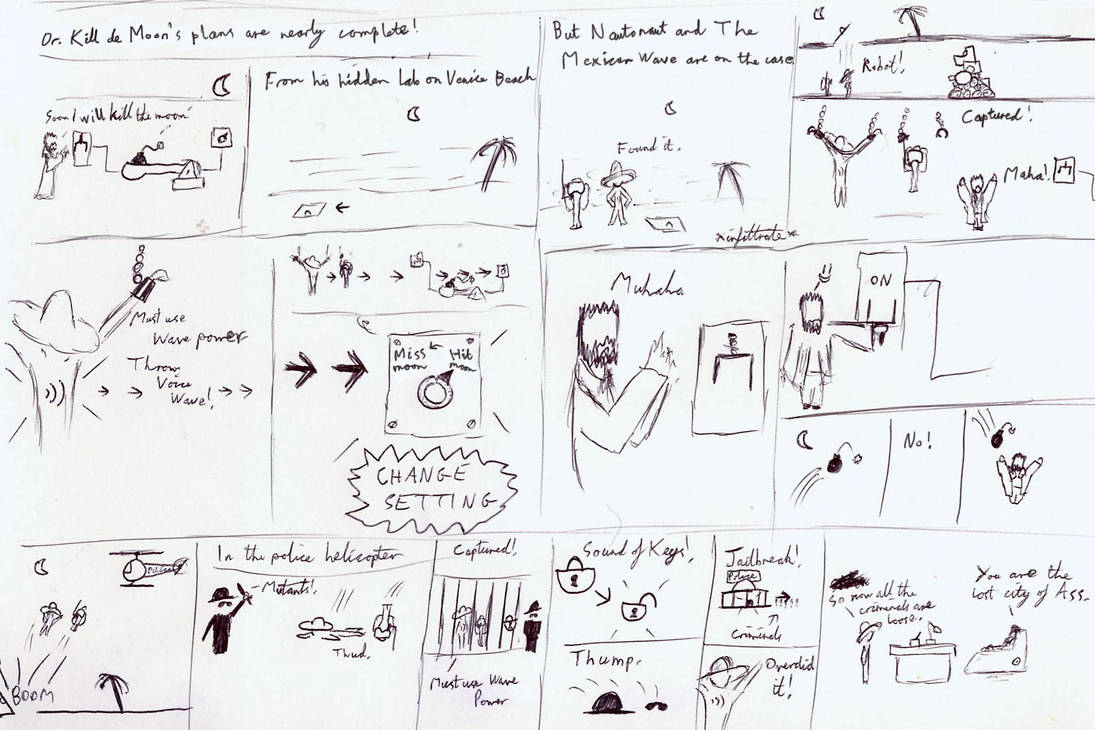 Dr. Kill de Moon's plans are nearly complete!
Soon I will kill the moon
From his hidden Lab on Venice Beach
But Nautonaut and The
Mexican Wave are on the case
Found it.
*infiltrate*
Robot!
Captured!
Maha!
Must use
Wave power
Throw
Voice
Wave!
Miss
moon
Hit
moon
CHANGE
SETTING
Muhaha
ON
No!
BOOM
In the police helicopter
Mutants!
Thud.
Captured!
Must use Wave
Power
Sound of Keys!
Thump.
Jailbreak!
Police
Criminals
Overdid
it!
So now all the
criminals are
loose.
You are the
lost city of Ass.